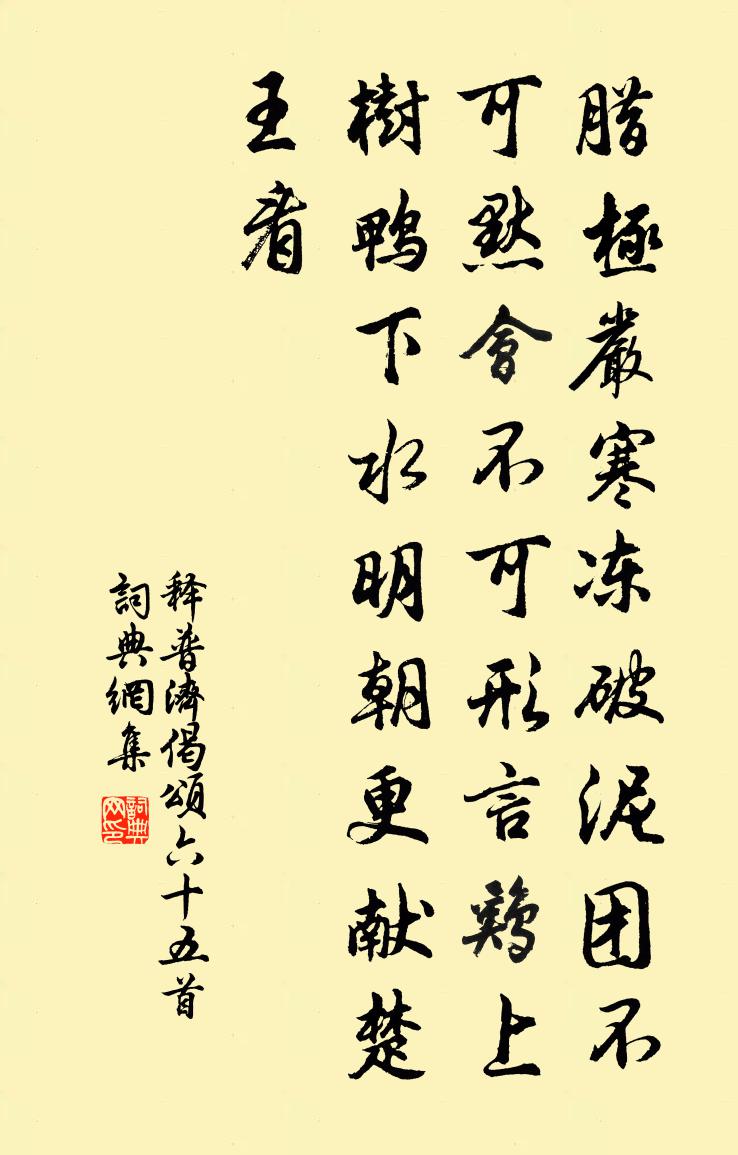 腊極嚴寒冻破泥团不
可默會不可形言鷄上
樹鴨下水明朝更献楚
王看
释普濟偈頌六十五首
詞典網集
詞典
网印